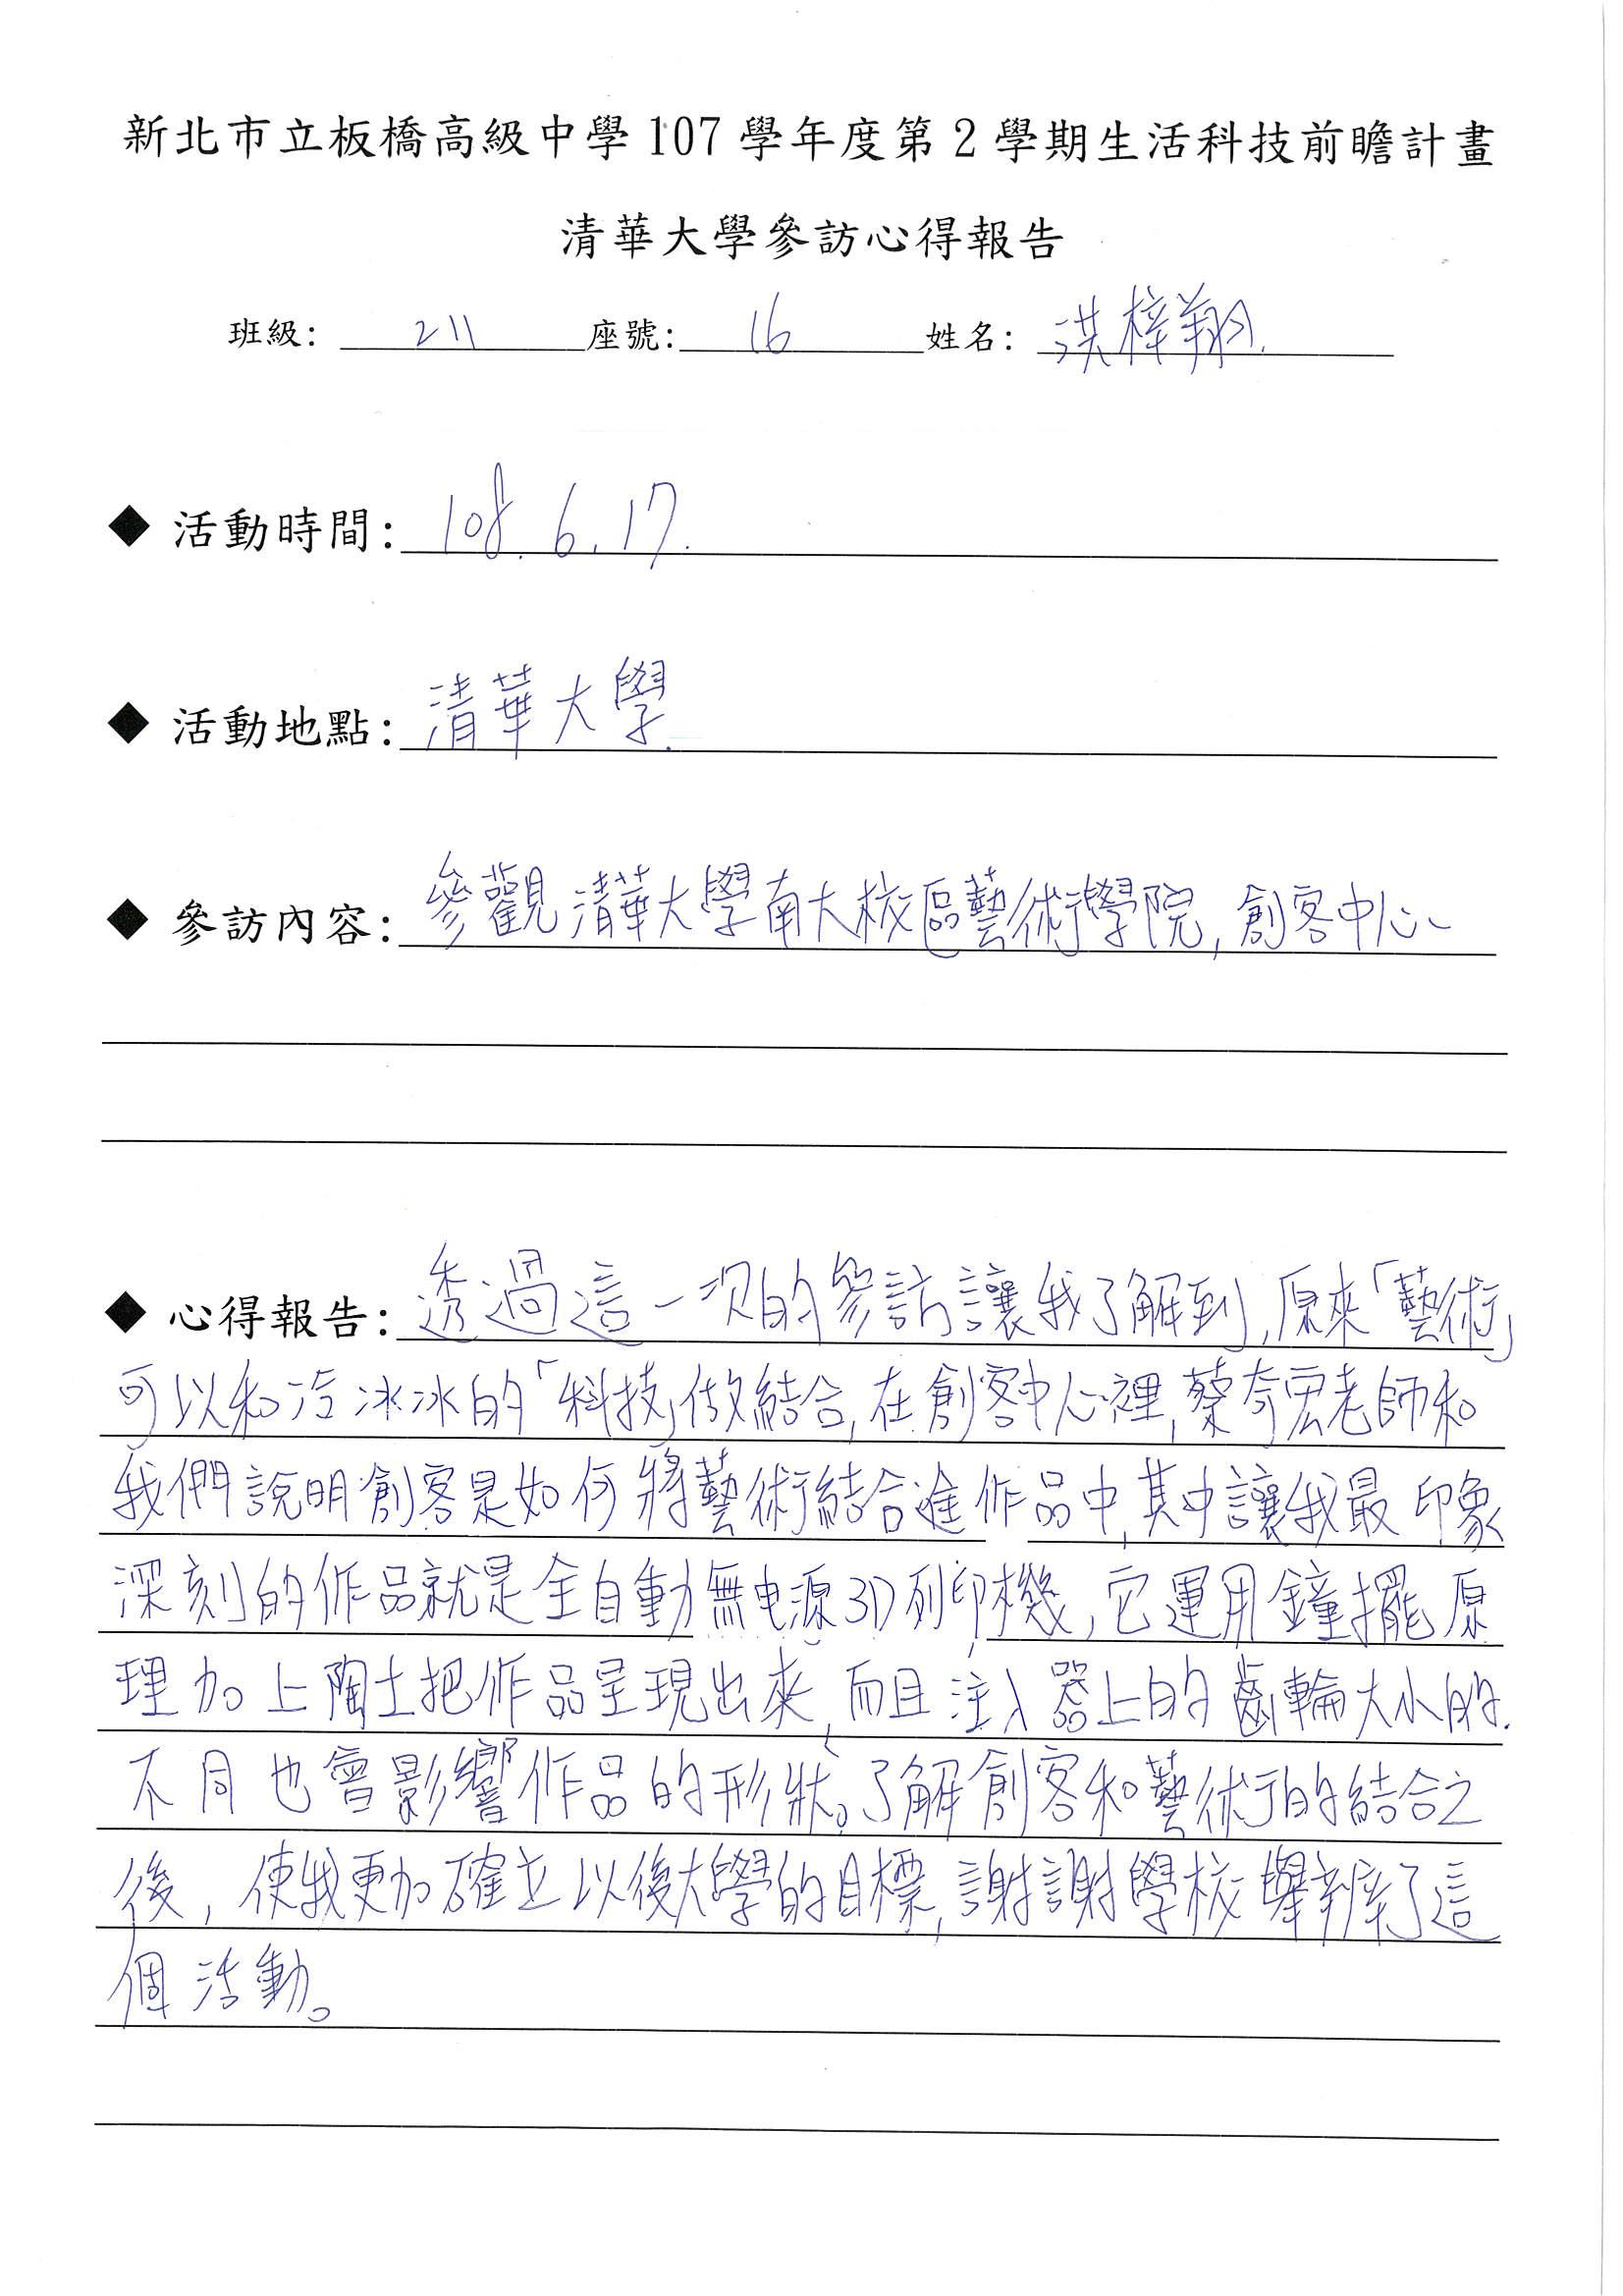 新北市立板橋高級中學107學年度第2學期生活科技前瞻計畫
清華大學參訪心得報告
班級: 211 座號: 16 姓名: 洪梓翔.
◆ 活動時間: 108.6.17.
◆ 活動地點: 清華大學.
◆ 參訪內容: 參觀清華大學南大校區藝術學院,創客中心
◆ 心得報告: 透過這一次的參訪讓我了解到,原來「藝術」
可以和冷冰冰的「科技」做結合,在創客中心裡,蔡奇宏老師和
我們說明創客是如何將藝術結合進作品中,其中讓我最印象
深刻的作品就是全自動無电源3D列印機,它運用鐘擺原
理加上陶土把作品呈現出來,而且注入器上的齒輪大小的.
不同也會影響作品的形狀。了解創客和藝術的結合之
後,使我更加確立以後大學的目標,謝謝學校舉辦了這
個活動。